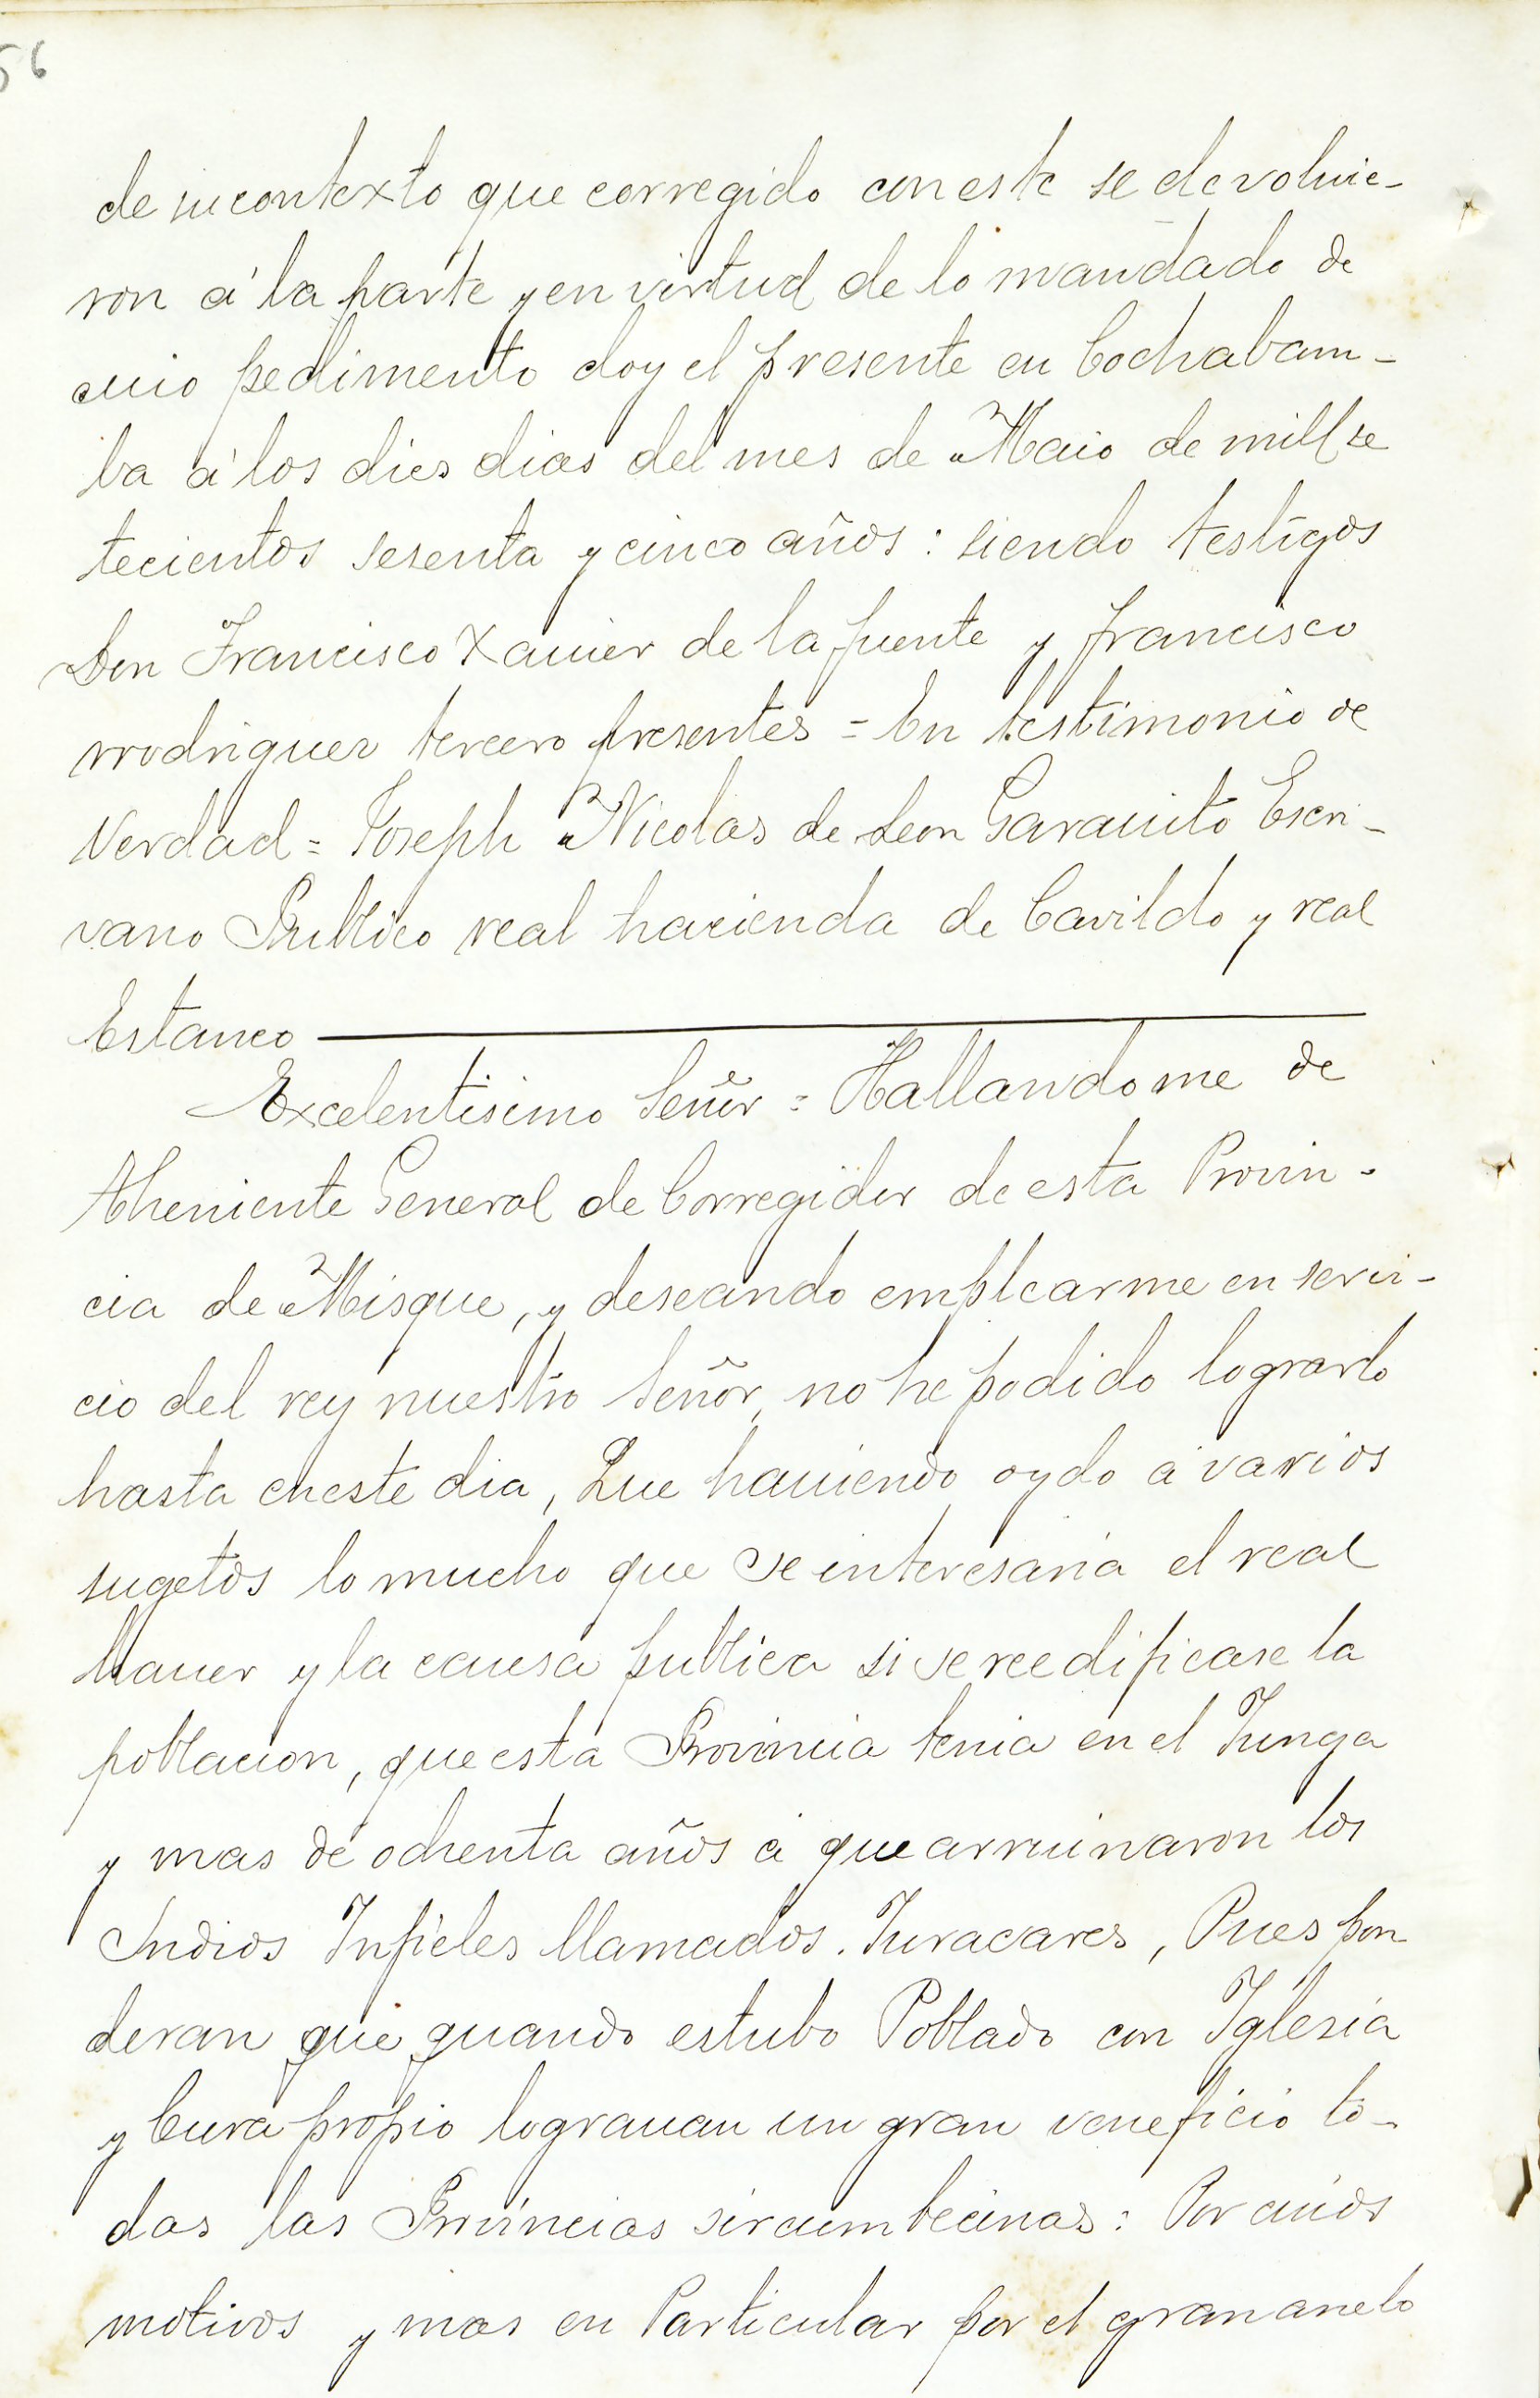 56
de su contexto que corregido con este se devolvie-
ron á la parte y en virtud de lo mandado de
cuio pedimento doy el presente en Cochabam-
ba á los dies dias del mes de Maio de mill se
tecientos sesenta y cinco años: siendo testigos
Don Francisco Xauier de la fuente y francisco
rrodriguez tercero presentes = En testimonio de
Verdad = Joseph Nicolas de Leon Garauito Escri-
vano Publico real hacienda de Cavildo y real
Estanco
Excelentisimo Señor = Hallandome de
Theniente General de Corregidor de esta Provin-
cia de Misque, y deseando emplearme en servi-
cio del rey nuestro Señor, no he podido lograrlo
hasta eneste dia, Que hauiendo oydo á varios
sugetos lo mucho que se interesaria el real
hauer y la causa publica si se reedificase la
poblacion, que esta Provincia tenia en el Yunga
y mas de ochenta años á que arruinaron los
Indios Infieles llamados. Yuracares, Pues pon
deran que quando estubo Poblado con Iglesia
y Cura propio lograuan un gran veneficio to-
das las Provincias sircumbecinas: Por cuios
motivos y mas en Particular por el gran anelo